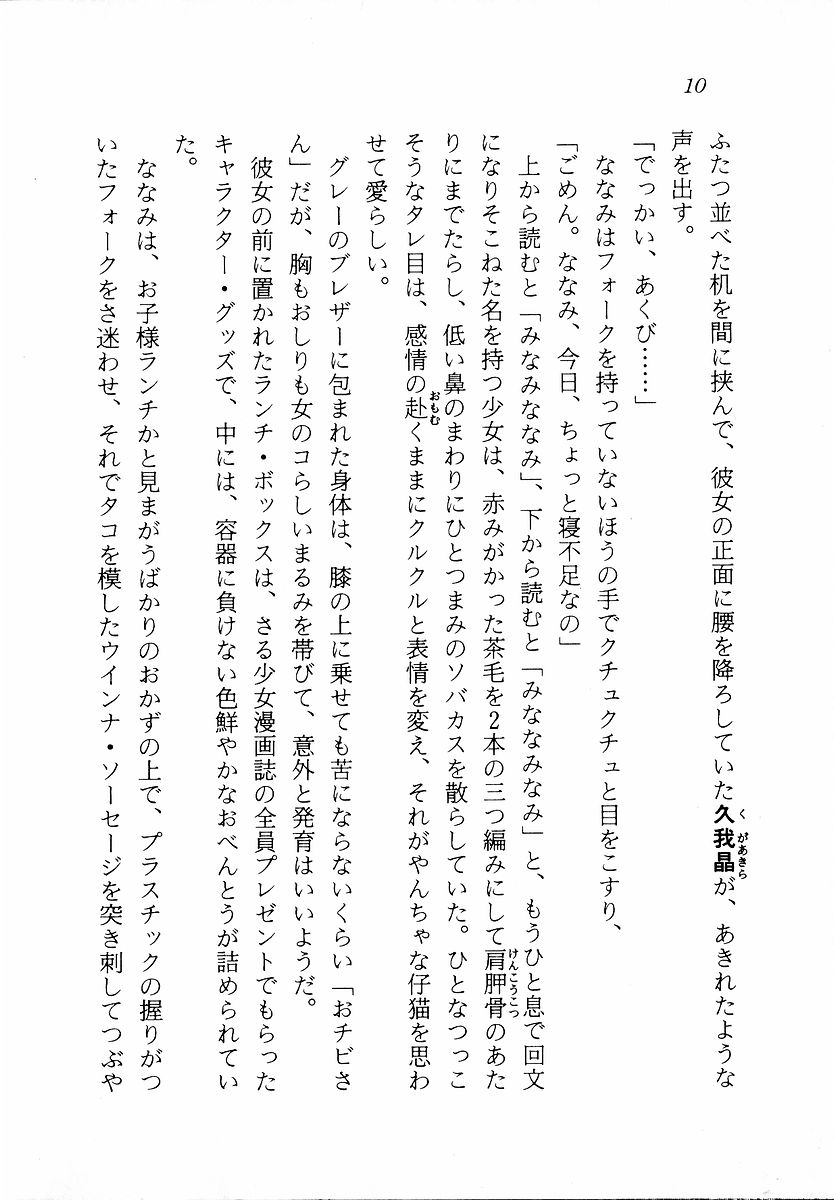 10
ふたつ並べた机を間に挟んで、彼女の正面に腰を降ろしていた久我晶が、あきれたような
声を出す。
「でっかい、あくび……」
ななみはフォークを持っていないほうの手でクチュクチュと目をこすり、
「ごめん。ななみ、今日、ちょっと寝不足なの」
上から読むと「みなみななみ」、下から読むと「みななみなみ」と、もうひと息で回文
になりそこねた名を持つ少女は、赤みがかった茶毛を2本の三つ編みにして肩胛骨のあた
りにまでたらし、低い鼻のまわりにひとつまみのソバカスを散らしていた。ひとなつっこ
そうなタレ目は、感情の赴くままにクルクルと表情を変え、それがやんちゃな仔猫を思わ
せて愛らしい。
グレーのブレザーに包まれた身体は、膝の上に乗せても苦にならないくらい「おチビさ
ん」だが、胸もおしりも女のコらしいまるみを帯びて、意外と発育はいいようだ。
彼女の前に置かれたランチ・ボックスは、さる少女漫画誌の全員プレゼントでもらった
キャラクター・グッズで、中には、容器に負けない色鮮やかなおべんとうが詰められてい
た。
ななみは、お子様ランチかと見まがうばかりのおかずの上で、プラスチックの握りがつ
いたフォークをさ迷わせ、それでタコを模したウインナ・ソーセージを突き刺してつぶや